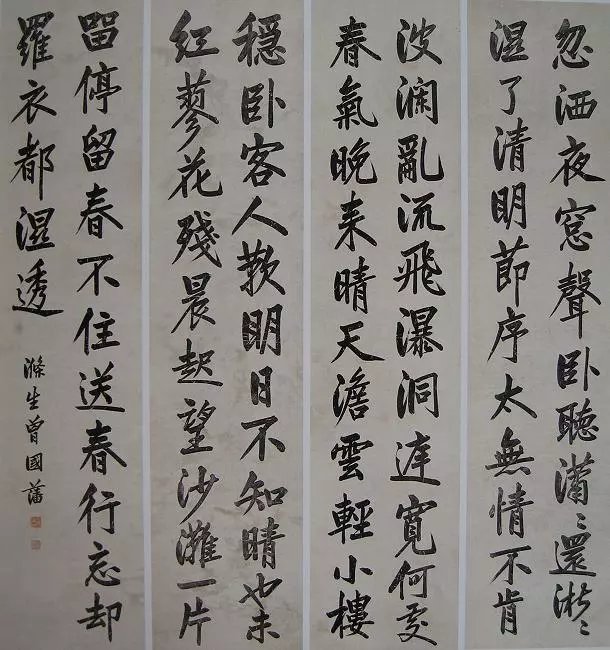 忽洒夜窓聲卧聽瀟〻還淅〻
湿了清明節序太無情不肯
波瀾亂流飛瀑洞庭寛何處
春氣晚来晴天澹雲輕小樓
穩卧客人歎明日不知晴也未
紅蓼花殘晨起望沙灘一片
畱停留春不住送春行忘却
羅衣都湿透
滌生曾國藩